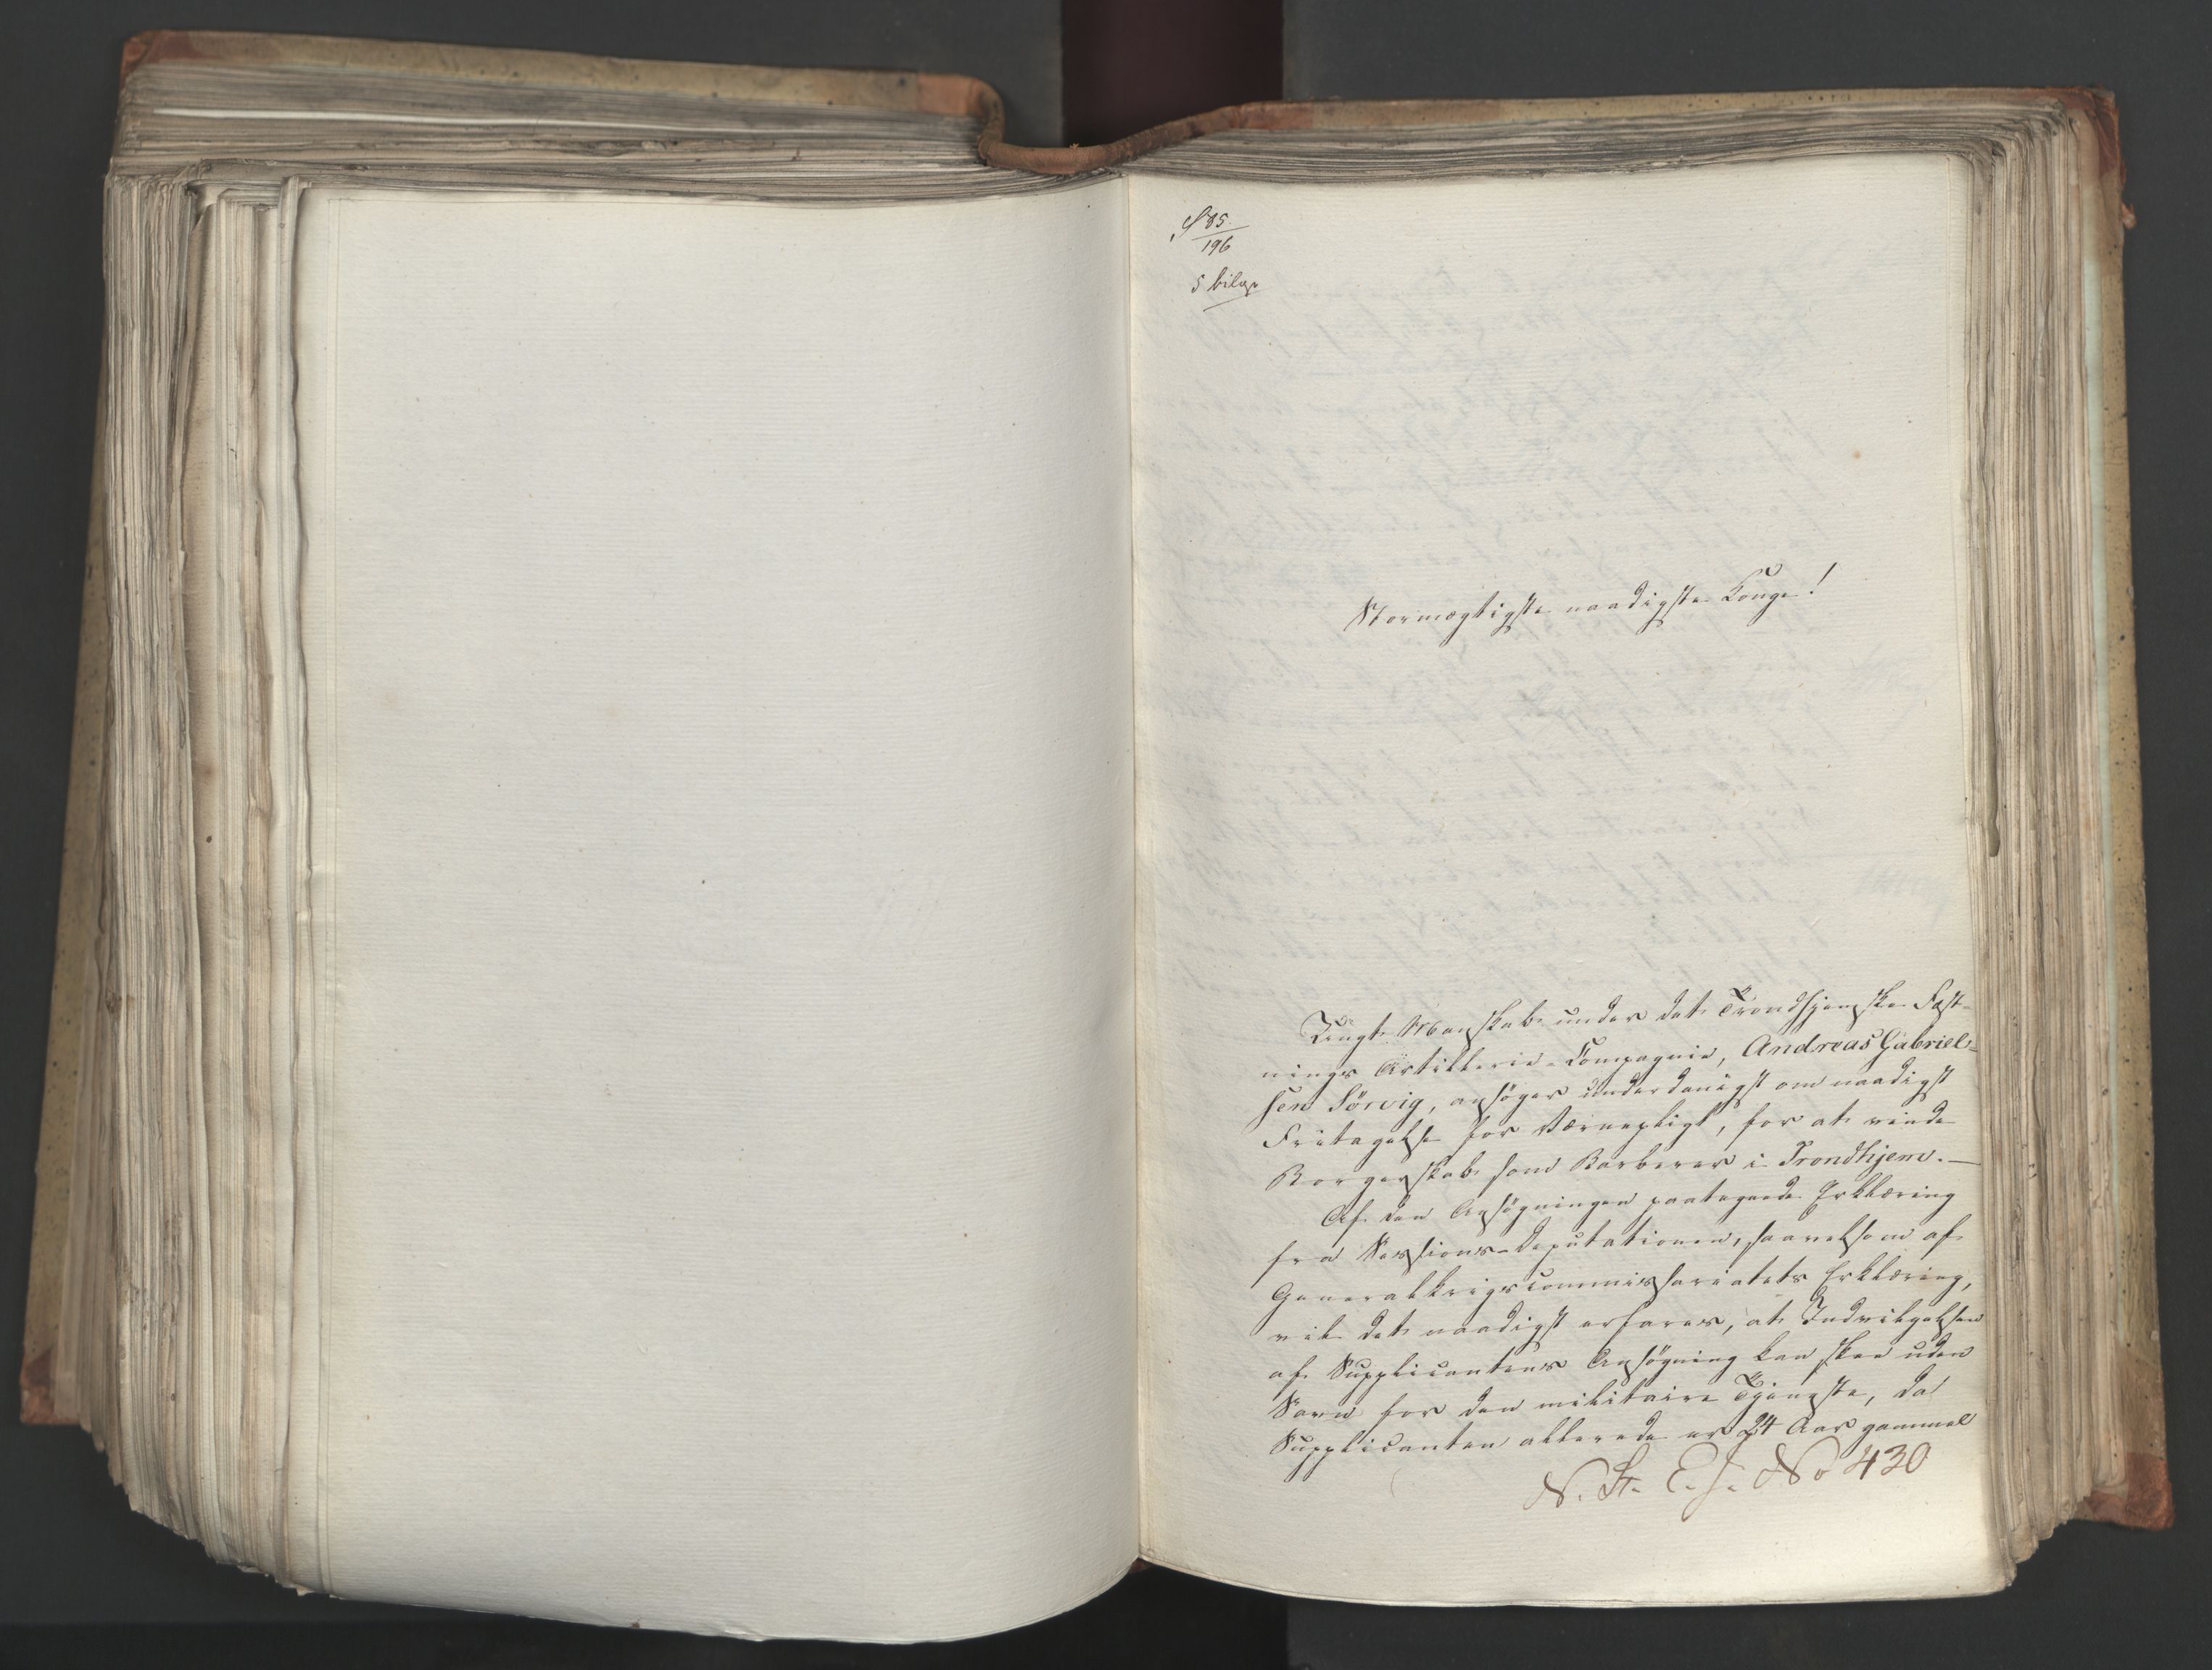 S 85
196
5 bilage
Stormægtigste naadigste Konge!
Tingt Mandskab under det Trondhjemske Fæst-
nings Artillerie-Compagnie, Andreas Gabriel-
sen Sörvig, ansöger underdanigst om naadigst
Fritagelse for Værnepligt, for at vinde
Borgerskab som Barberer i Trondhjem. —
Af den Ansögningen paategnede Erklæring
fra Sessions-Deputationen, saavelsom af
Generalkrigscommissariatets Erklæring,
vil det naadigst erfares, at Indvilgelsen
af Supplicantens Ansögning kan skee uden
Savn for den militaire Tjeneste, da
Supplicanten allerede er 24 Aar gammel
N. St. E. J. No 430